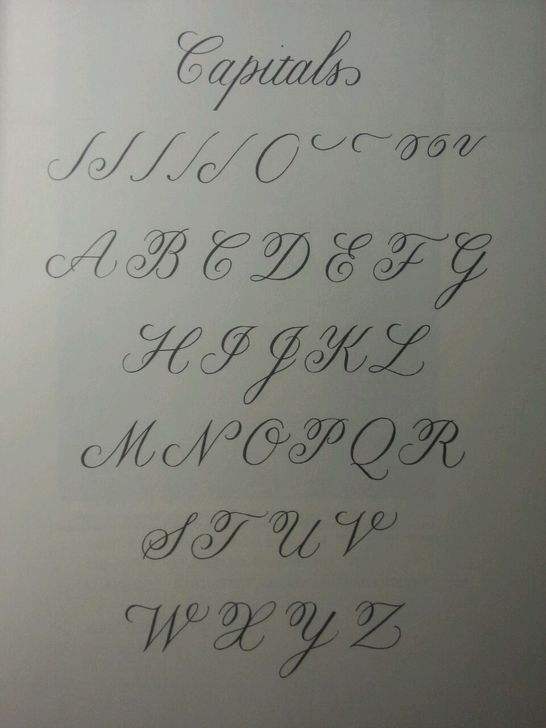 Capitals
A B C D E F G
H I J K L
M N O P Q R
S T U V
W X Y Z